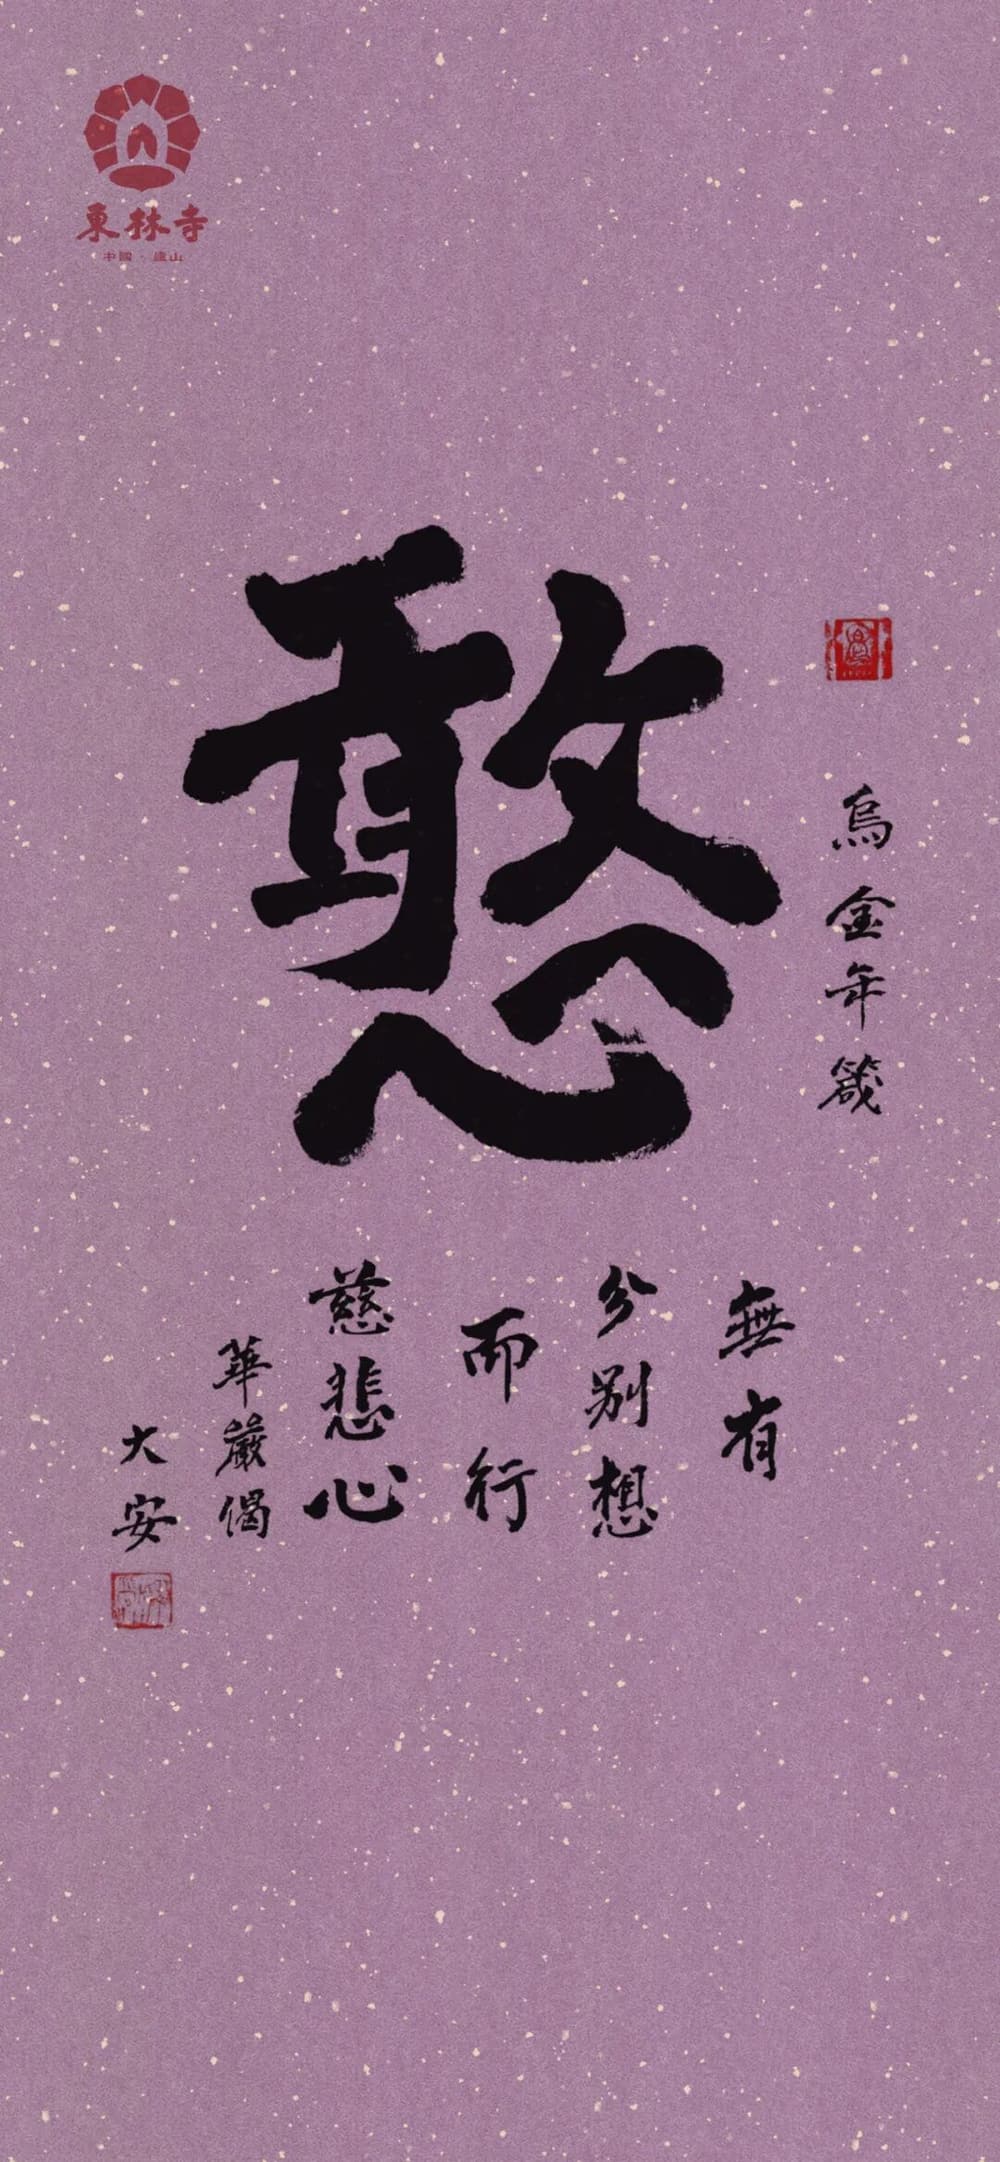 東林寺
中國·廬山
憨
烏金年箴
無有
分別想
而行
慈悲心
華嚴偈
大安